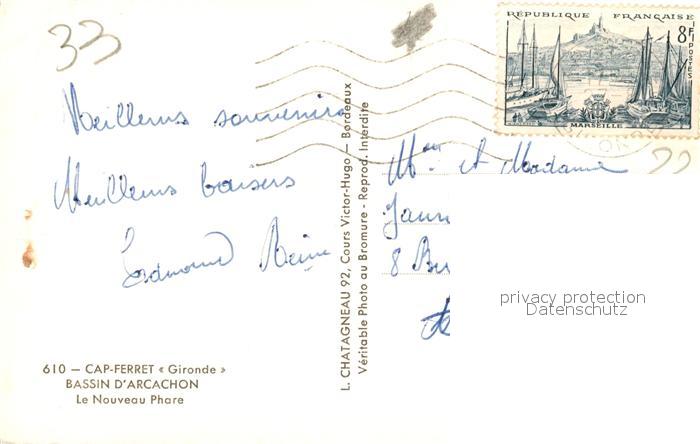 33
RÉPUBLIQUE FRANÇAISE
8F
POSTES
MARSEILLE
Meilleurs souvenirs
Meilleurs baisers
Edmond Reine
610 — CAP-FERRET « Gironde »
BASSIN D'ARCACHON
Le Nouveau Phare
L. CHATAGNEAU 92, Cours Victor-Hugo — Bordeaux
Véritable Photo au Bromure - Reprod. Interdire
et Madame
8
privacy protection
Datenschutz